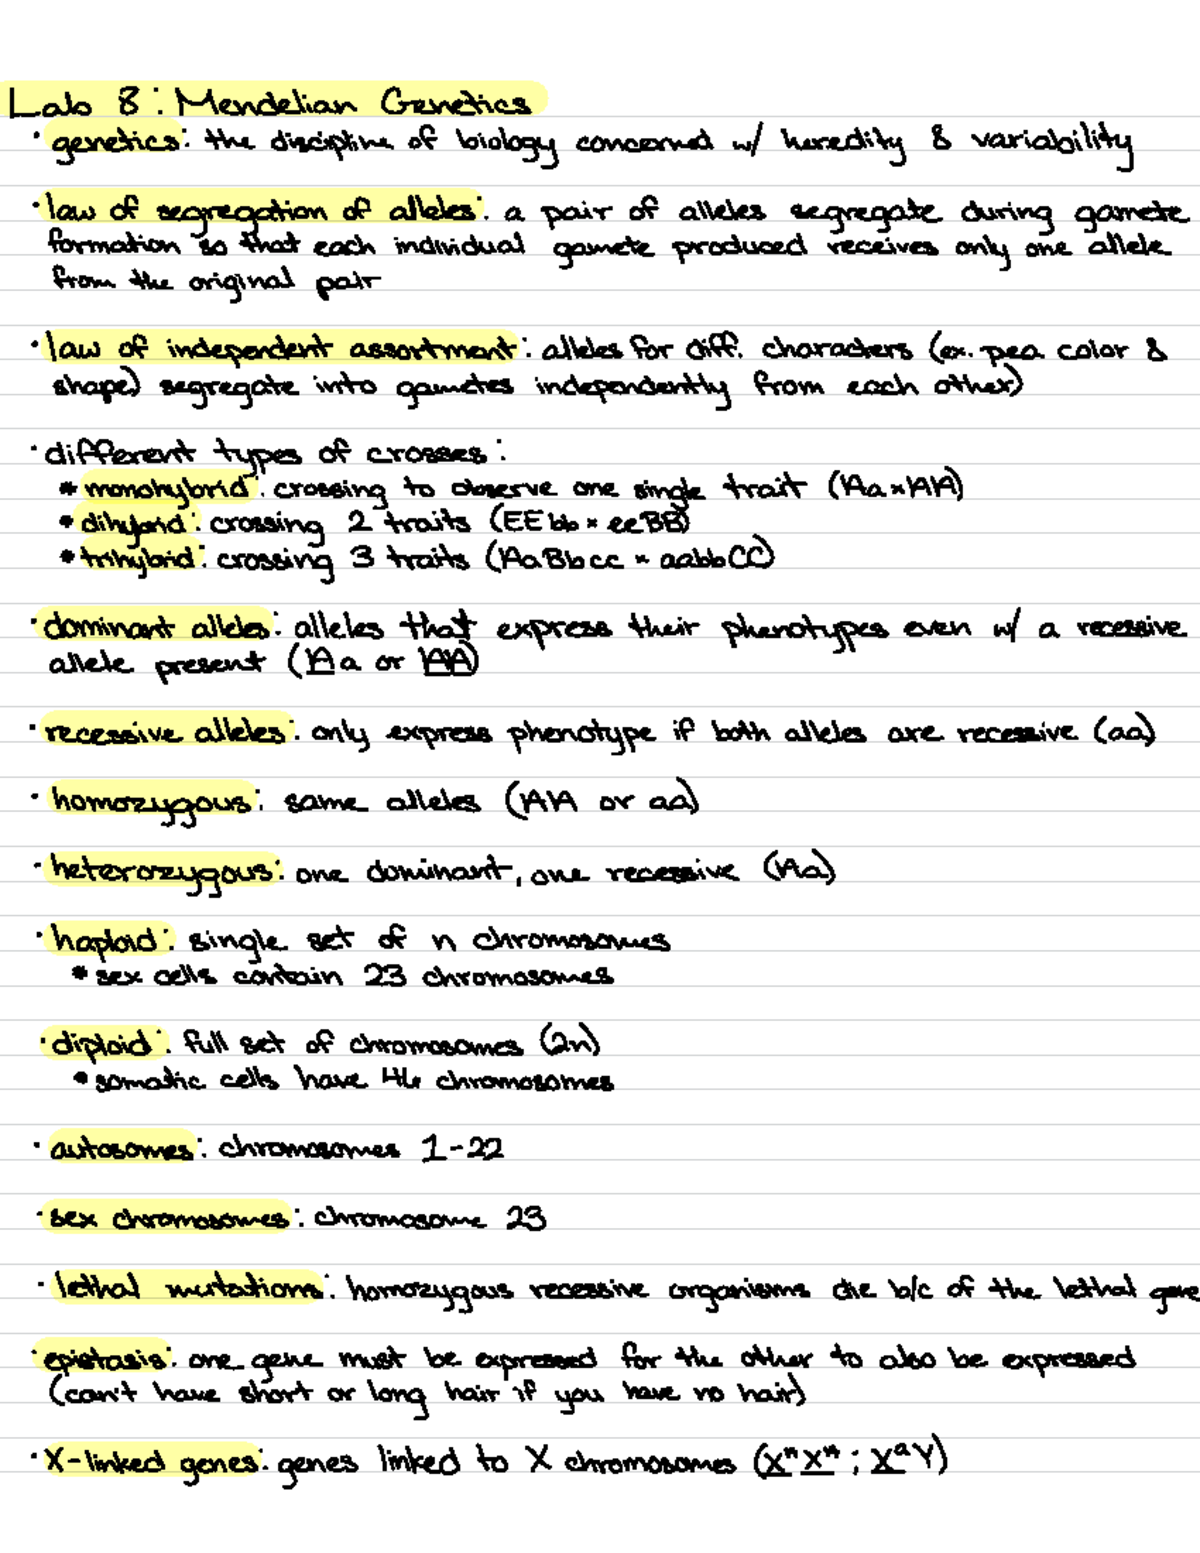 Lab 8: Mendelian Genetics
· genetics: the discipline of biology concerned w/ heredity & variability
· law of segregation of alleles: a pair of alleles segregate during gamete
formation so that each individual gamete produced receives only one allele
from the original pair
· law of independent assortment: alleles for diff. characters (ex. pea color &
shape) segregate into gametes independently from each other)
· different types of crosses:
* monohybrid: crossing to observe one single trait (Aa × AA)
* dihybrid: crossing 2 traits (EEbb × eeBB)
* trihybrid: crossing 3 traits (AaBbcc × aabbCC)
· dominant alleles: alleles that express their phenotypes even w/ a recessive
allele present (Aa or AA)
· recessive alleles: only express phenotype if both alleles are recessive (aa)
· homozygous: same alleles (AA or aa)
· heterozygous: one dominant, one recessive (Aa)
· haploid: single set of n chromosomes
* sex cells contain 23 chromosomes
· diploid: full set of chromosomes (2n)
* somatic cells have 46 chromosomes
· autosomes: chromosomes 1-22
· sex chromosomes: chromosome 23
· lethal mutations: homozygous recessive organisms die b/c of the lethal gene
· epistasis: one gene must be expressed for the other to also be expressed
(can't have short or long hair if you have no hair)
· X-linked genes: genes linked to X chromosomes (XᴬXᴬ; XᵃY)